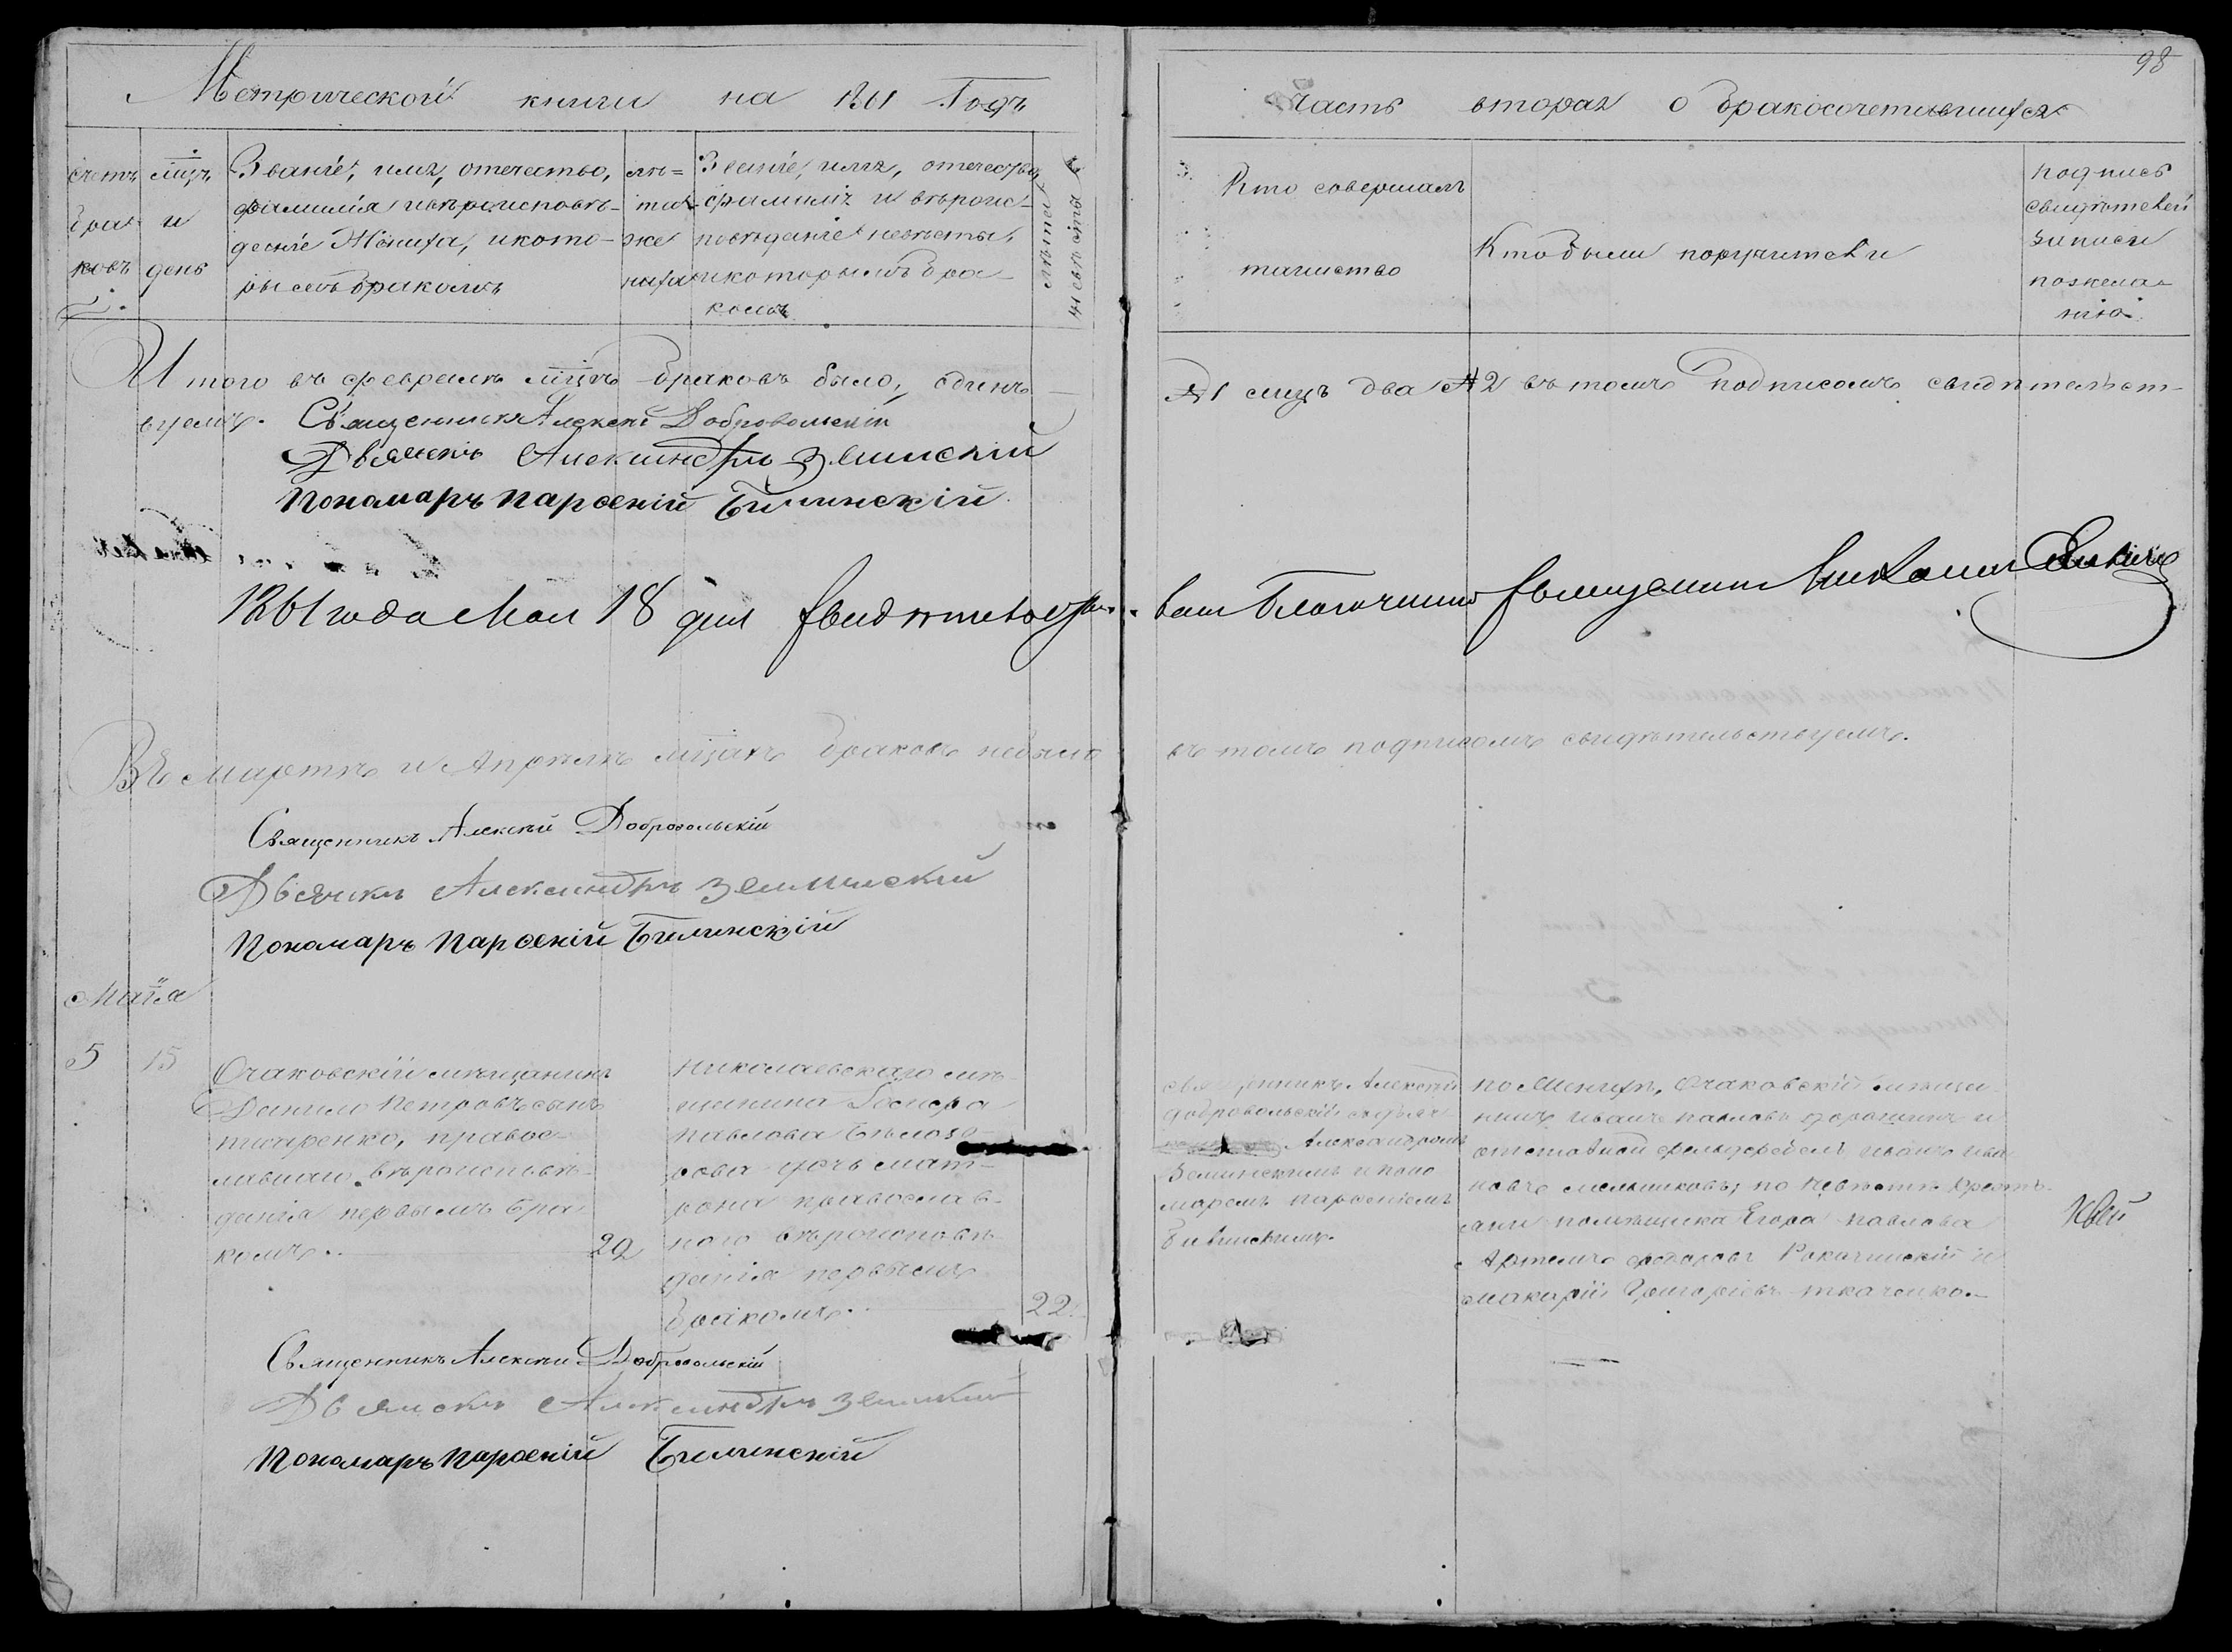 98
Метрической книги на 1861 Годъ
Часть вторая о бракосочетавшихся
счетъ
бра-
ковъ
мцъ
и
день
Званіе, имя, отечество,
фамилія и вѣроисповѣ-
деніе Жениха, и кото-
рымъ бракомъ
лѣ=
та
же
ниха
Званіе, имя, отечество,
фамилія и вѣроис-
повѣданіе невѣсты,
и которымъ бра-
комъ
лѣта
невѣсты
Кто совершалъ
таинство
Кто были поручители
подпись
свидѣтелей
записи
по жела-
нію
Итого въ февралѣ мцѣ браковъ было, одинъ
№ 1 лицъ два № 2 въ томъ подписомъ свидѣтельст-
вуемъ. Священникъ Алексѣй Добровольскій
Дьячекъ Александръ Зелинскій
Пономарь Парѳеній Билинскій
1861 года Мая 18 дня свидѣтельство-
валъ Благочинный Священникъ
Въ Мартѣ и Апрѣлѣ мцахъ браковъ небыло
въ томъ подписомъ свидѣтельствуемъ.
Священникъ Алексѣй Добровольскій
Дьячекъ Александръ Зелинскій
Пономарь Парѳеній Билинскій
Маіа
5 15
Очаковскій мѣщанинъ
Данило Петровъ сынъ
писаренко, правос-
лавнаго вѣроисповѣ-
данія первымъ бра
комъ..
29
Николаевскаго мѣ-
щанина
Павлова Бѣлозо-
рова дочь мат-
рона православ-
наго вѣроисповѣ-
данія первымъ
бракомъ.
22.
священникъ Алексѣй
добровольскій съ дьяч
Александромъ
Зелинскимъ и поно
маремъ парѳеніемъ
билинскимъ.
по Женихѣ, Очаковскій мѣща
нинъ иванъ павловъ и
отставной фельдфебель иванъ ива
новъ мельниковъ; по Невѣстѣ Крестъ-
яни помѣщика Егора павлова
Артемъ федоровъ Рокачинскій и
макарій Григоріевъ ткаченко.-
Священникъ Алексѣй Добровольскій
Дьячекъ Александръ Зелинскій
Пономарь Парѳеній Билинскій